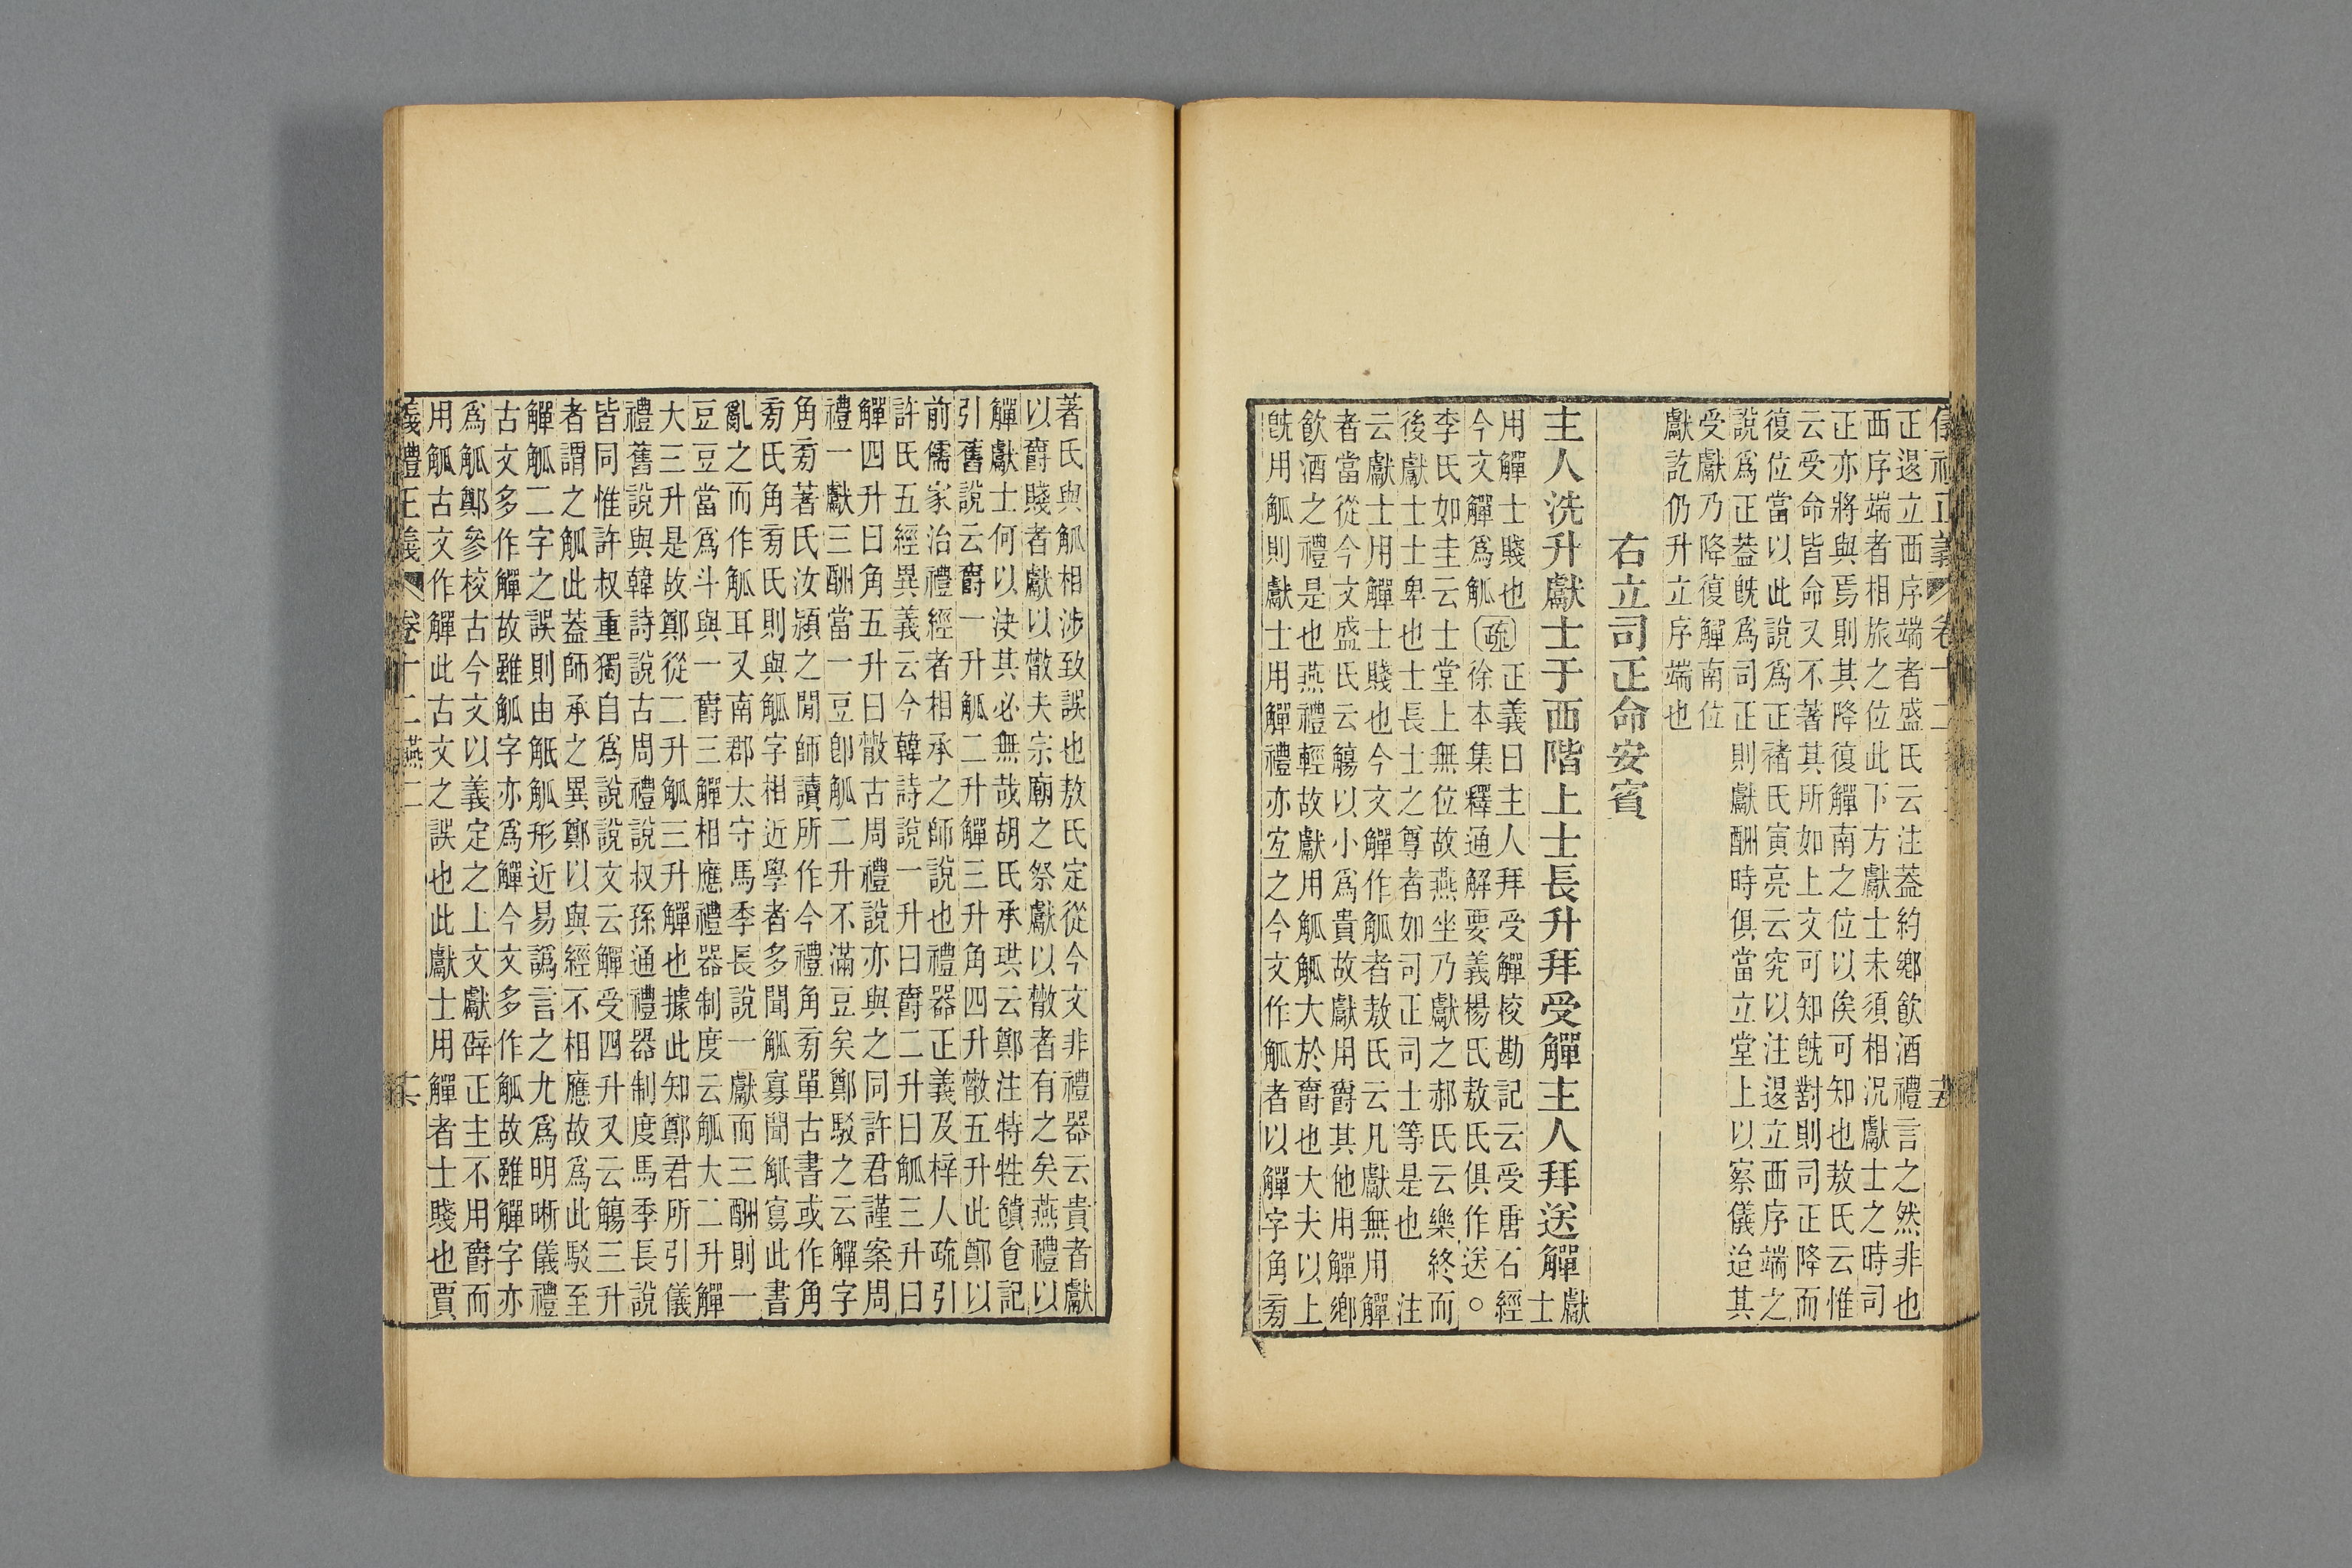 儀禮正義 卷十二 燕二 十五
正退立西序端者盛氏云注葢約鄉飮酒禮言之然非也
西序端者相旅之位此下方獻士未須相況獻士之時司
正亦將與焉則其降復觶南之位以俟可知也敖氏云惟
云受命皆命又不著其所如上文可知旣對則司正降而
復位當以此說爲正褚氏寅亮云究以注退立西序端之
說爲正葢旣爲司正則獻酬時俱當立堂上以察儀迨其
受獻乃降復觶南位
獻訖仍升立序端也
右立司正命安賓
主人洗升獻士于西階上士長升拜受觶主人拜送觶獻士
用觶士賤也
今文觶爲觚疏
正義曰主人拜受觶校勘記云受唐石經
徐本集釋通解要義楊氏敖氏俱作送○
李氏如圭云士堂上無位故燕坐乃獻之郝氏云樂終而
後獻士士卑也士長士之尊者如司正司士等是也 注
云獻士用觶士賤也今文觶作觚者敖氏云凡獻無用觶
者當從今文盛氏云觴以小爲貴故獻用爵其他用觶鄉
飮酒之禮是也燕禮輕故獻用觚觚大於爵也大夫以上
旣用觚則獻士用觶禮亦宐之今文作觚者以觶字角㫄
著氏與觚相涉致誤也敖氏定從今文非禮器云貴者獻
以爵賤者獻以散夫宗廟之祭獻以散者有之矣燕禮以
觶獻士何以決其必無哉胡氏承珙云鄭注特牲饋食記
引舊說云爵一升觚二升觶三升角四升散五升此鄭以
前儒家治禮經者相承之師說也禮器正義及梓人疏引
許氏五經異義云今韓詩說一升曰爵二升曰觚三升曰
觶四升曰角五升曰散古周禮說亦與之同許君謹案周
禮一獻三酬當一豆卽觚二升不滿豆矣鄭駁之云觶字
角㫄著氏汝潁之閒師讀所作今禮角㫄單古書或作角
㫄氏角㫄氏則與觚字相近學者多聞觚寡聞觗寫此書
亂之而作觚耳又南郡太守馬季長說一獻而三酬則一
豆豆當爲斗與一爵三觶相應禮器制度云觚大二升觶
大三升是故鄭從二升觚三升觶也據此知鄭君所引儀
禮舊說與韓詩說古周禮說叔孫通禮器制度馬季長說
皆同惟許叔重獨自爲說說文云觶受四升又云觴三升
者謂之觚此葢師承之異鄭以與經不相應故爲此駁至
觶觚二字之誤則由觗觚形近易譌言之尤爲明晰儀禮
古文多作觶故雖觚字亦爲觶今文多作觚故雖觶字亦
爲觚鄭參校古今文以義定之上文獻辟正主不用爵而
用觚古文作觶此古文之誤也此獻士用觶者士賤也賈
義禮正義 卷十二 燕二 十六